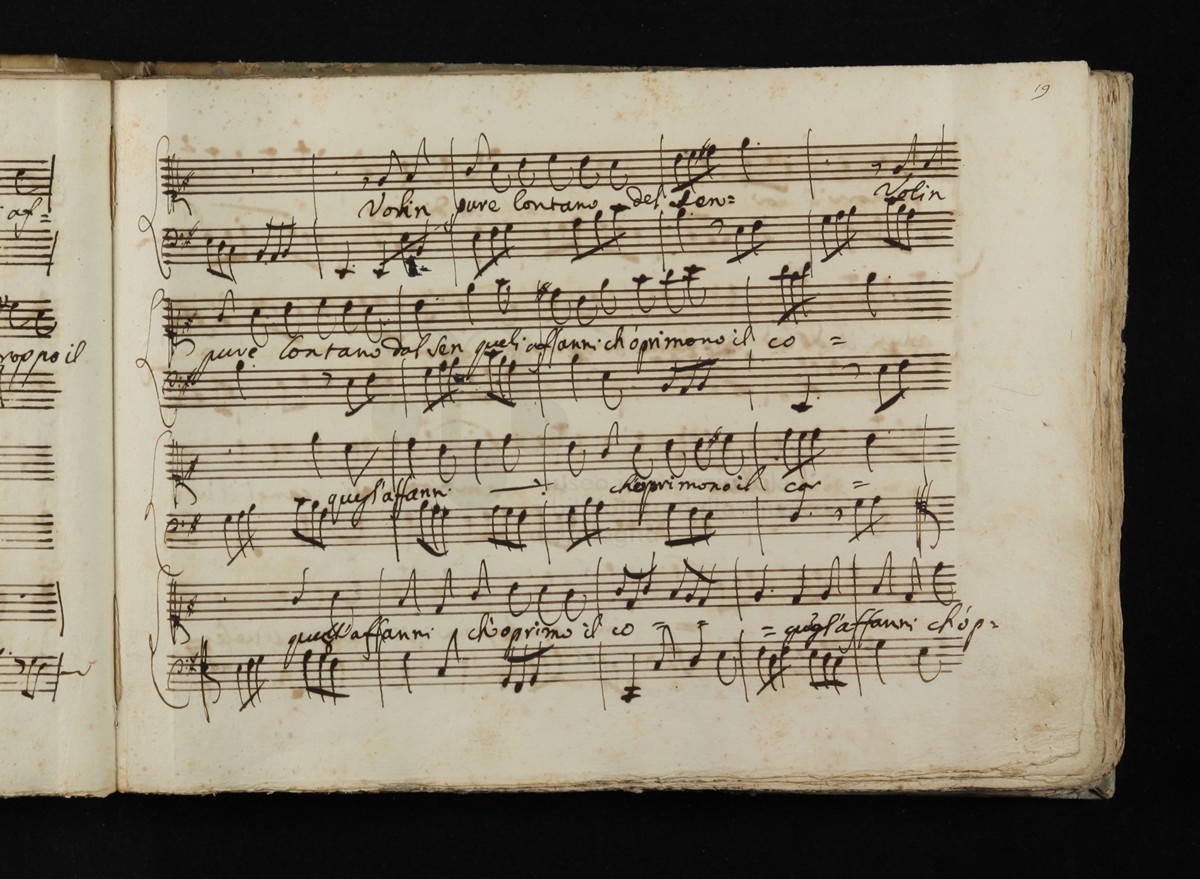 19
af=
Volin pure lontano del Sen= Volin
roppo il
pure lontano dal sen queli affanni ch'oprimono il co =
quegl'affanni ch'oprimono il cor =
quegl'affanni ch'oprimo il co = = = quegl'affanni ch'op=